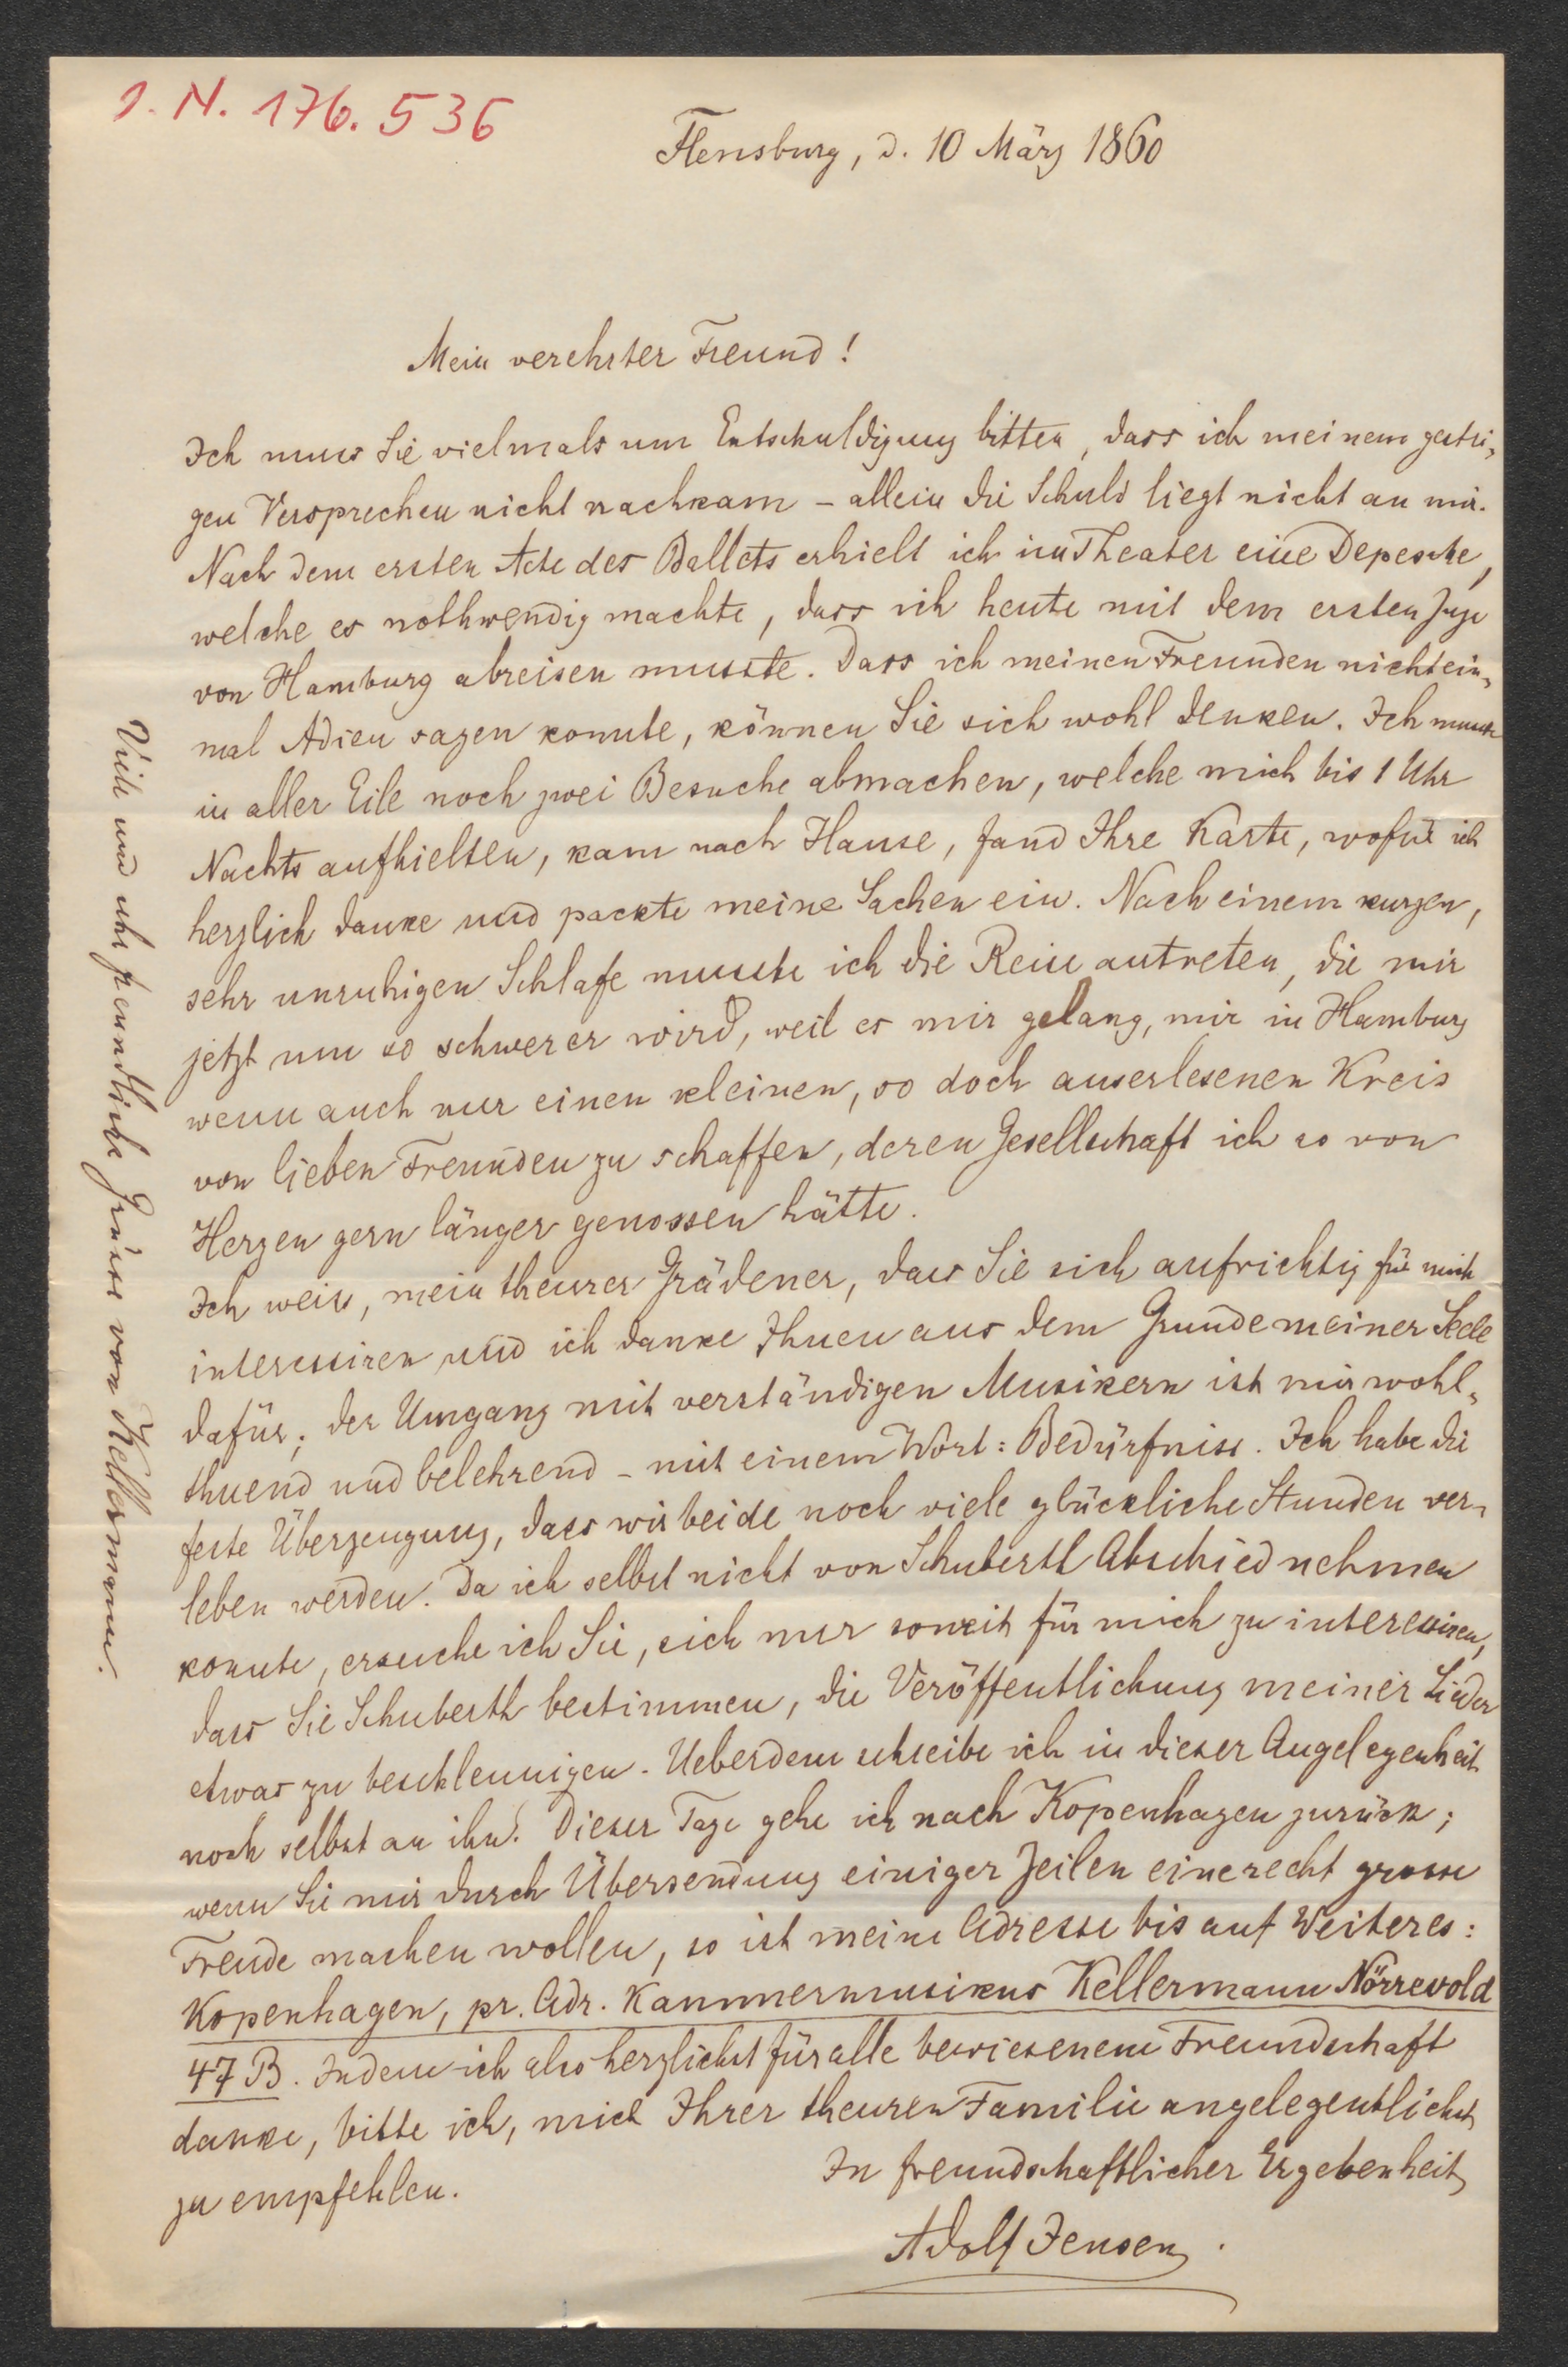 J. N. 176.536
Flensburg, d. 10 März 1860
Mein verehrter Freund!
Ich muss Sie vielmals um Entschuldigung bitten, dass ich meinem gestri-
gen Versprechen nicht nachkam – allein die Schuld liegt nicht an mir.
Nach dem ersten Acte des Ballets erhielt ich im Theater eine Depesche,
welche es nothwendig machte, dass ich heute mit dem ersten Zuge
von Hamburg abreisen musste. Dass ich meinen Freunden nicht ein-
mal Adieu sagen konnte, können Sie sich wohl denken. Ich musste
in aller Eile noch zwei Besuche abmachen, welche mich bis 1 Uhr
Nachts aufhielten, kam nach Hause, fand Ihre Karte, wofür ich
herzlich danke und packte meine Sachen ein. Nach einem kurzen,
sehr unruhigen Schlafe musste ich die Reise antreten, die mir
jetzt um so schwerer wird, weil es mir gelang, mir in Hamburg
wenn auch nur einen kleinen, so doch auserlesenen Kreis
von lieben Freunden zu schaffen, deren Gesellschaft ich so von
Herzen gern länger genossen hätte.
Ich weiss, mein theurer Grädener, dass Sie sich aufrichtig für mich
interessiren und ich danke Ihnen aus dem Grunde meiner Seele
dafür; der Umgang mit verständigen Musikern ist mir wohl-
thuend und belehrend – mit einem Wort: Bedürfniss. Ich habe die
feste Überzeugung, dass wir beide noch viele glückliche Stunden ver-
leben werden. Da ich selbst nicht von Schuberth Abschied nehmen
konnte, ersuche ich Sie, sich nur soweit für mich zu interessiren,
dass Sie Schuberth bestimmen, die Veröffentlichung meiner Lieder
etwas zu beschleunigen. Ueberdem schreibe ich in dieser Angelegenheit
noch selbst an ihn. Dieser Tage gehe ich nach Kopenhagen zurück;
wenn Sie mir durch Übersendung einiger Zeilen eine recht grosse
Freude machen wollen, so ist meine Adresse bis auf Weiteres:
Kopenhagen, pr. Adr. Kammermusikus Kellermann Nörrevold
47 B. Indem ich also herzlichst für alle bewiesenene Freundschaft
danke, bitte ich, mich Ihrer theuren Familie angelegentlichst
zu empfehlen.
In freundschaftlicher Ergebenheit
Adolf Jensen.
Viele und sehr freundliche Grüsse von Kellermann.